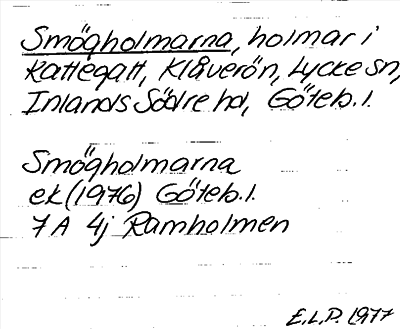 Smögholmarna, holmar i
Kattegatt, Klåverön, Lycke sn,
Inlands Södre hd, Göteb. l.
Smögholmarna
ek (1976) Göteb. l.
7 A 4j Ramholmen
E.L.P. 1977